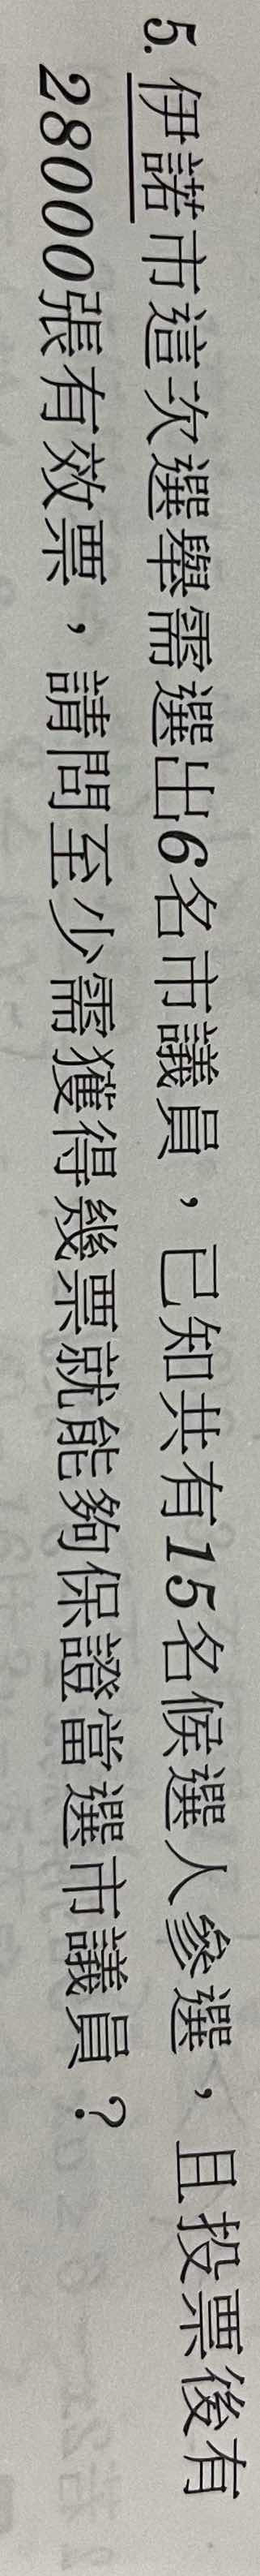 5. 伊諾市這次選舉需選出6名市議員，已知共有15名候選人參選，且投票後有
28000張有效票，請問至少需獲得幾票就能夠保證當選市議員？